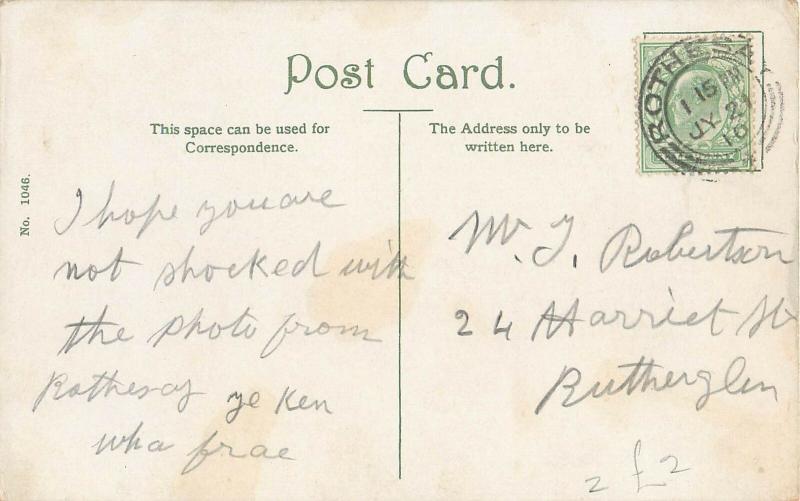 Post Card.
This space can be used for
Correspondence.
The Address only to be
written here.
No. 1046.
ROTHESAY
1 15 PM
JY 21
10
I hope you are
not shocked with
the photo from
Rothesay ye ken
wha frae
Mr. J. Robertson
24 Harriet St
Rutherglen
2 £2